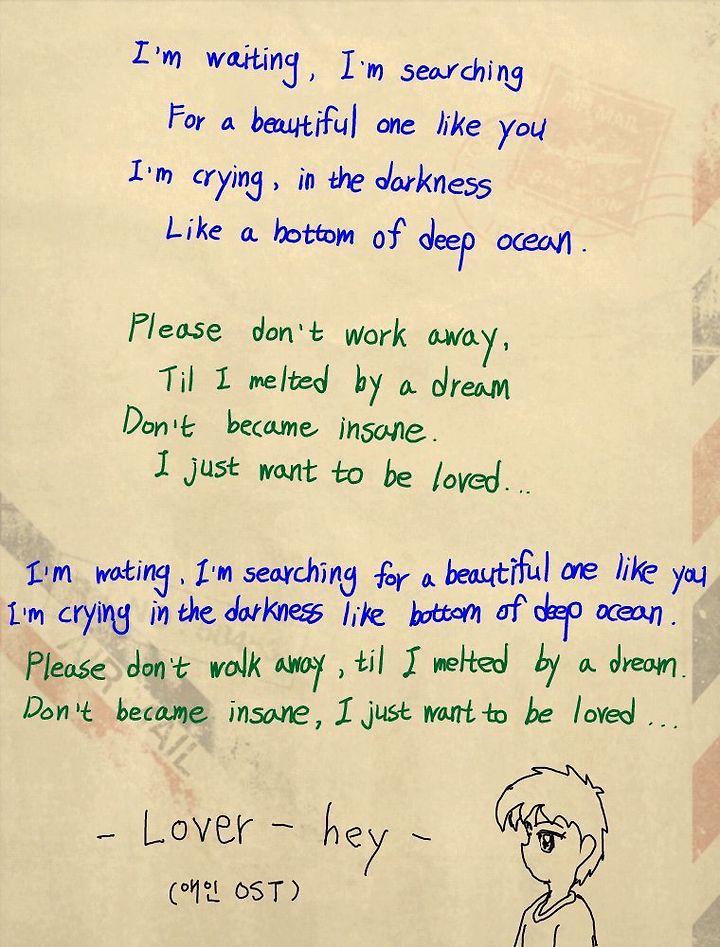 I'm waiting, I'm searching
For a beautiful one like you
I'm crying, in the darkness
Like a bottom of deep ocean.
Please don't work away,
Til I melted by a dream
Don't became insane.
I just want to be loved...
I'm wating, I'm searching for a beautiful one like you
I'm crying in the darkness like bottom of deep ocean.
Please don't walk away, til I melted by a dream.
Don't became insane, I just want to be loved...
- Lover - hey -
(애인 OST)
AIR MAIL